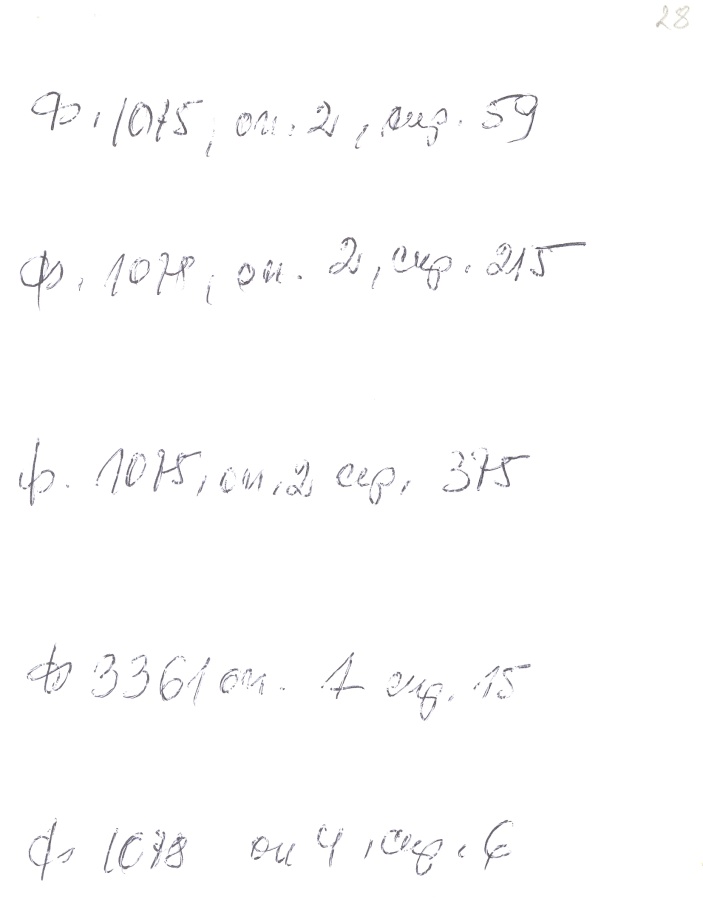 28
Ф. 1075, оп. 2, спр. 59
ф. 1078, оп. 2, спр. 215
ф. 1075, оп. 2 спр. 375
ф 3361 оп. 1 спр. 15
ф. 1078 оп 4, спр. 6